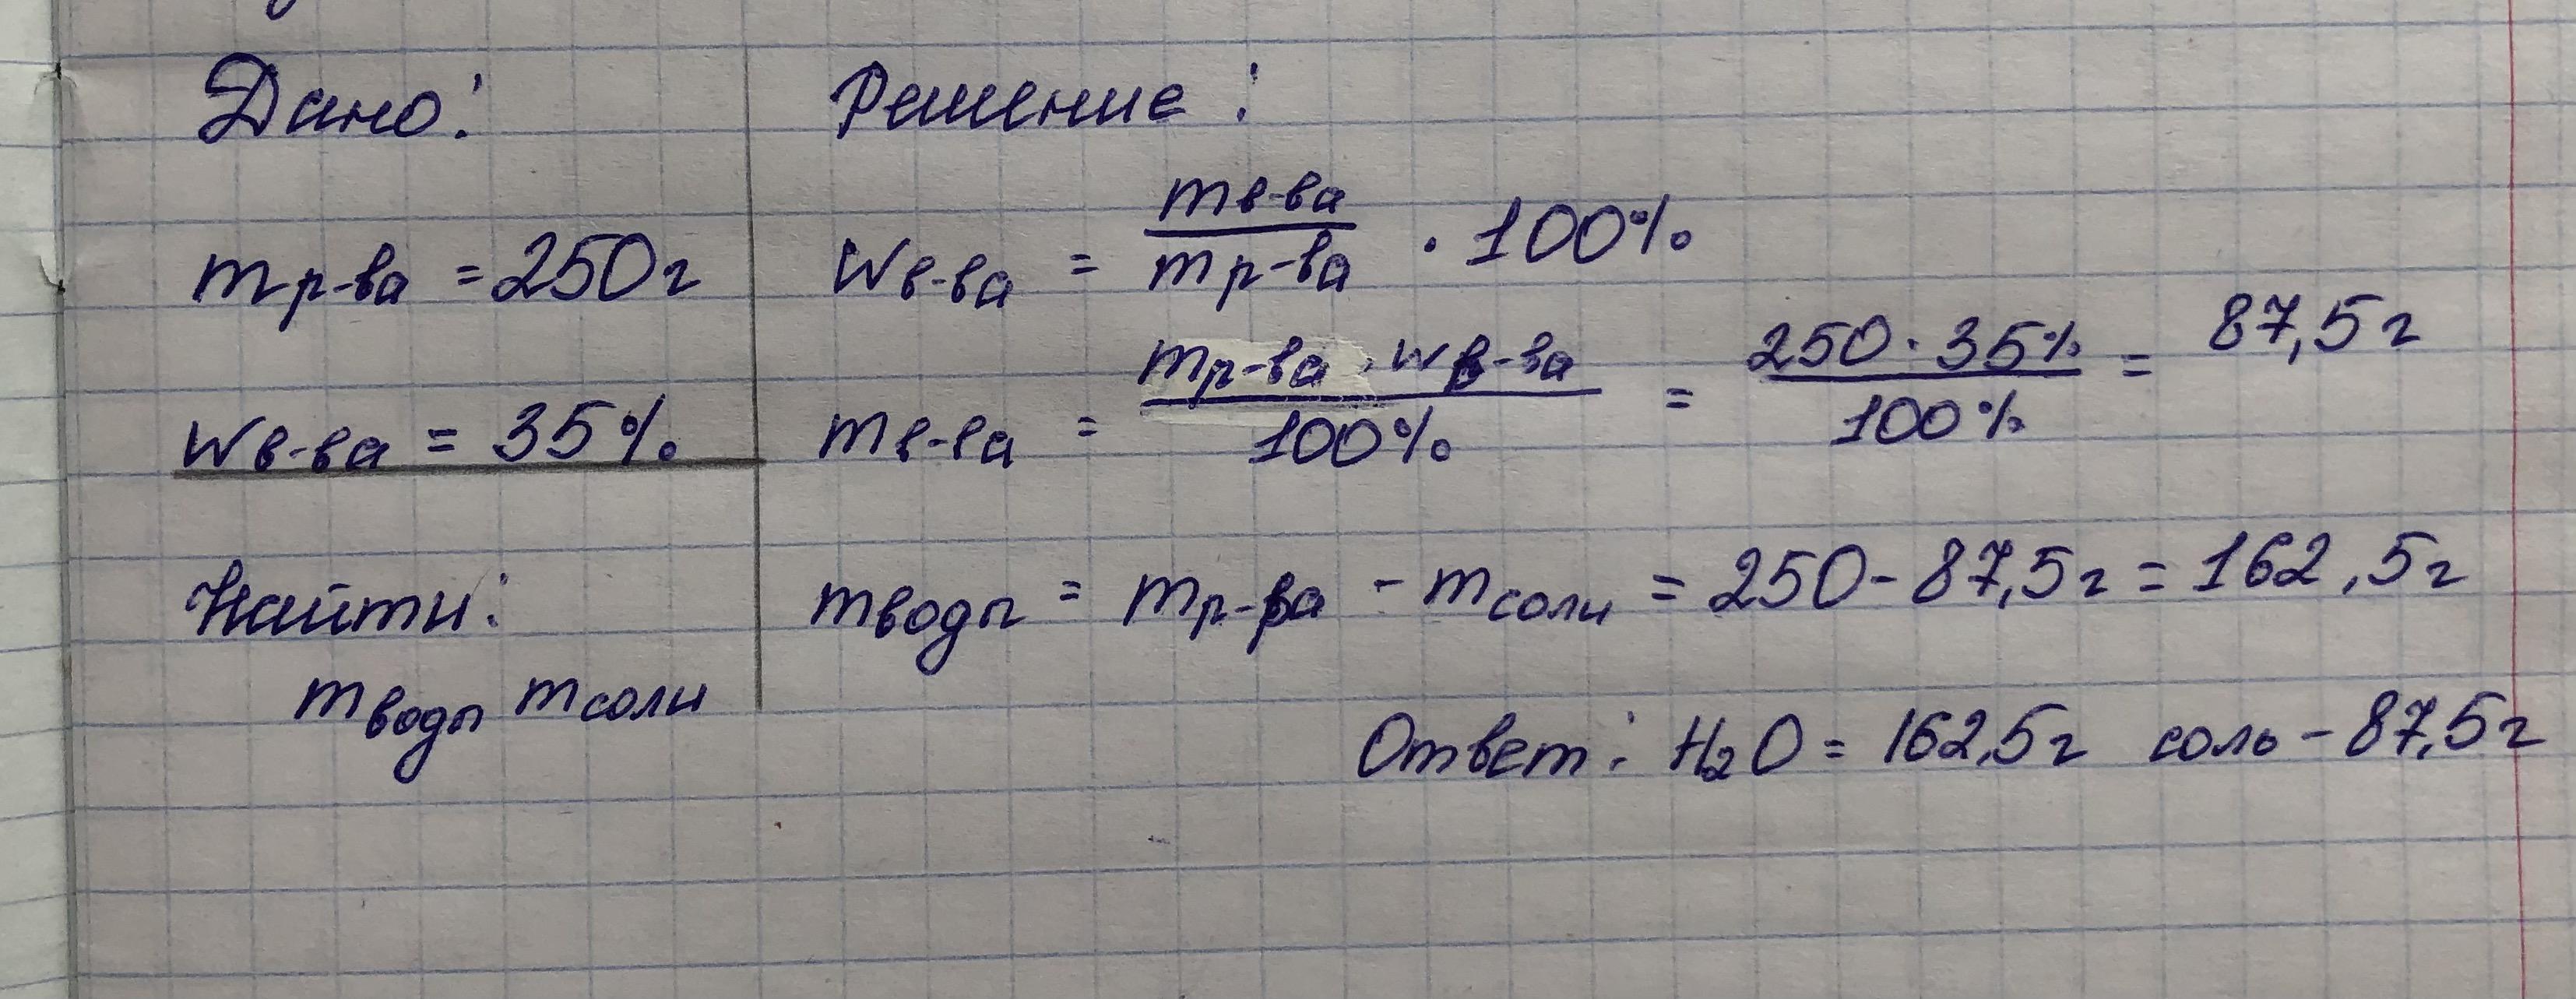 Дано:
mр-ва = 250г
Wв-ва = 35%
Найти:
mводы mсоли
Решение:
Wв-ва = mв-ва / mр-ва · 100%
mв-ва = mр-ва · Wв-ва / 100% = 250 · 35% / 100% = 87,5г
mводы = mр-ва - mсоли = 250 - 87,5г = 162,5г
Ответ: H₂O = 162,5г соль - 87,5г